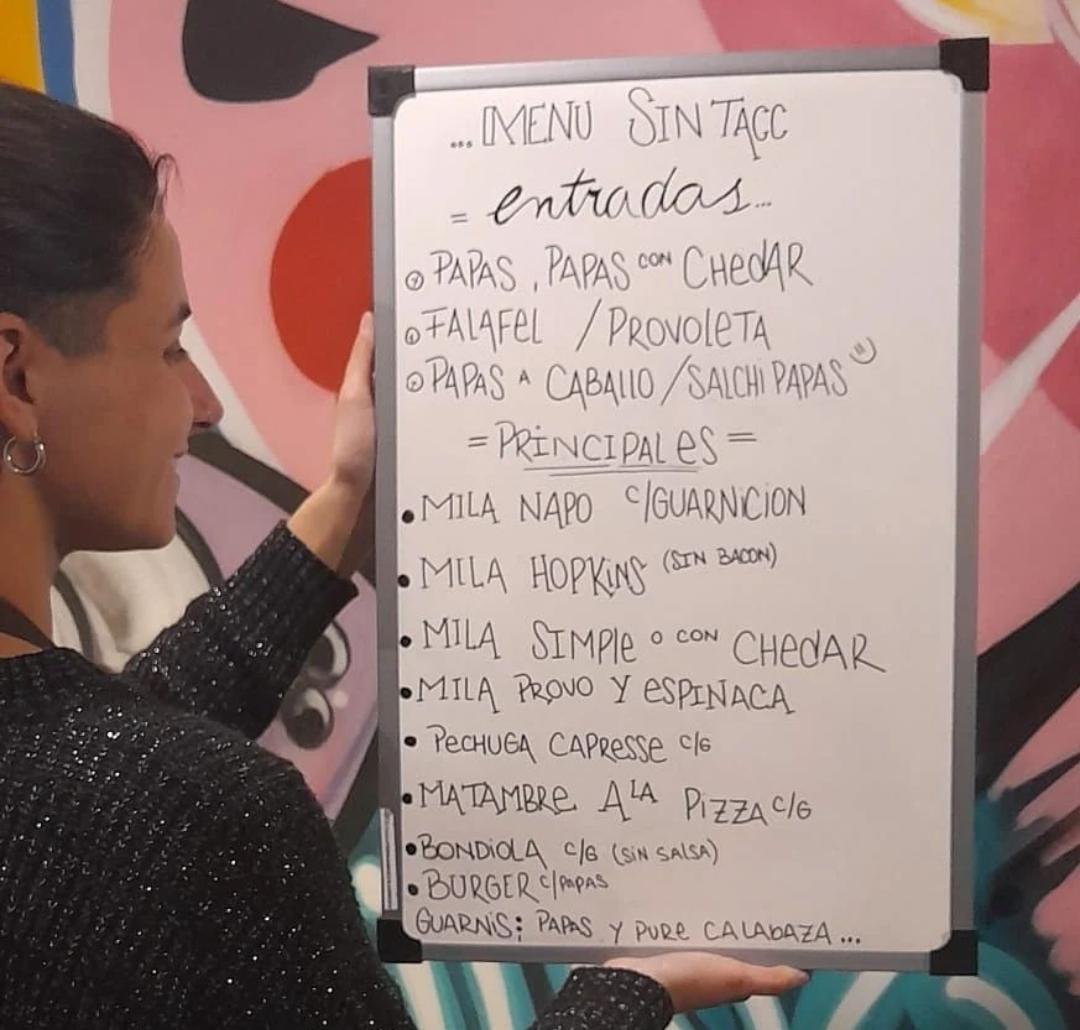 ... MENU SIN TACC
= entradas...
PAPAS, PAPAS CON CHedAR
FALAFeL / PROVOLeTA
PAPAS A CABALLO / SALCHI PAPAS
= PRiNCIPALeS =
• MILA NAPO C/GUARNiCION
• MILA HOPKiNS (SIN BACON)
• MILA SIMPLe O CON CHedAR
• MILA PROVO Y eSPINACA
• PeCHUGA CAPReSSe C/G
• MATAMBRe A LA PiZZA C/G
• BONDiOLA C/G (SiN SALSA)
• BURGER C/PAPAS
GUARNiS: PAPAS Y PURe CALAbAZA...